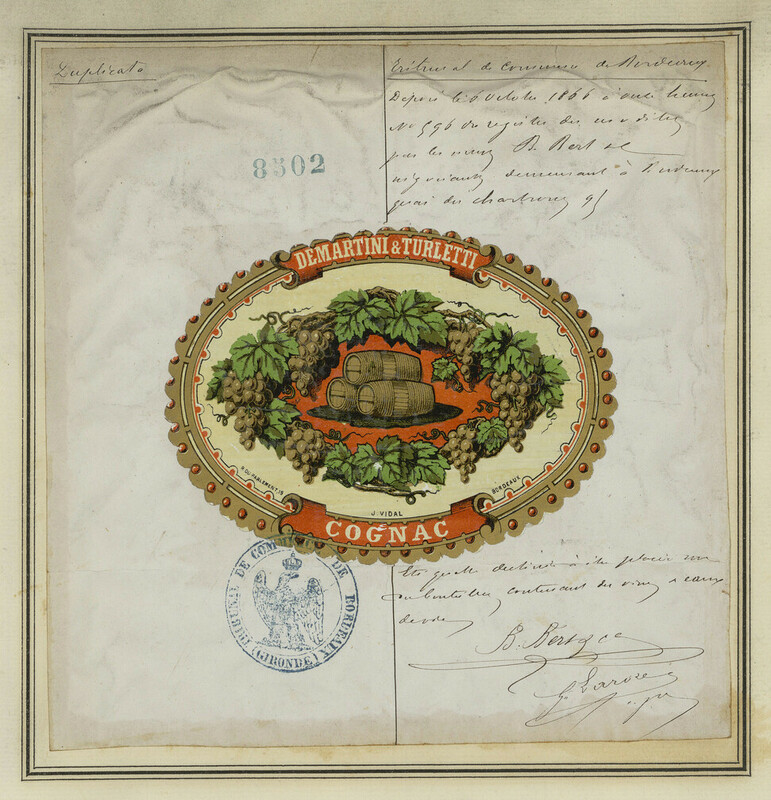 Duplicata
Tribunal de Commerce de Bordeaux
Déposé le 6 Octobre 1866 à onze heures
No 596 du registre des
par les sieurs B. Bert
négociants demeurant à Bordeaux
quai des chartrons 91
8502
DEMARTINI & TURLETTI
R. DU PARLEMENT.19
J. VIDAL
BORDEAUX
COGNAC
TRIBUNAL DE COMMERCE DE BORDEAUX
(GIRONDE)
étiquette destinée à être placée sur
bouteilles contenant des vins & eaux
de vie